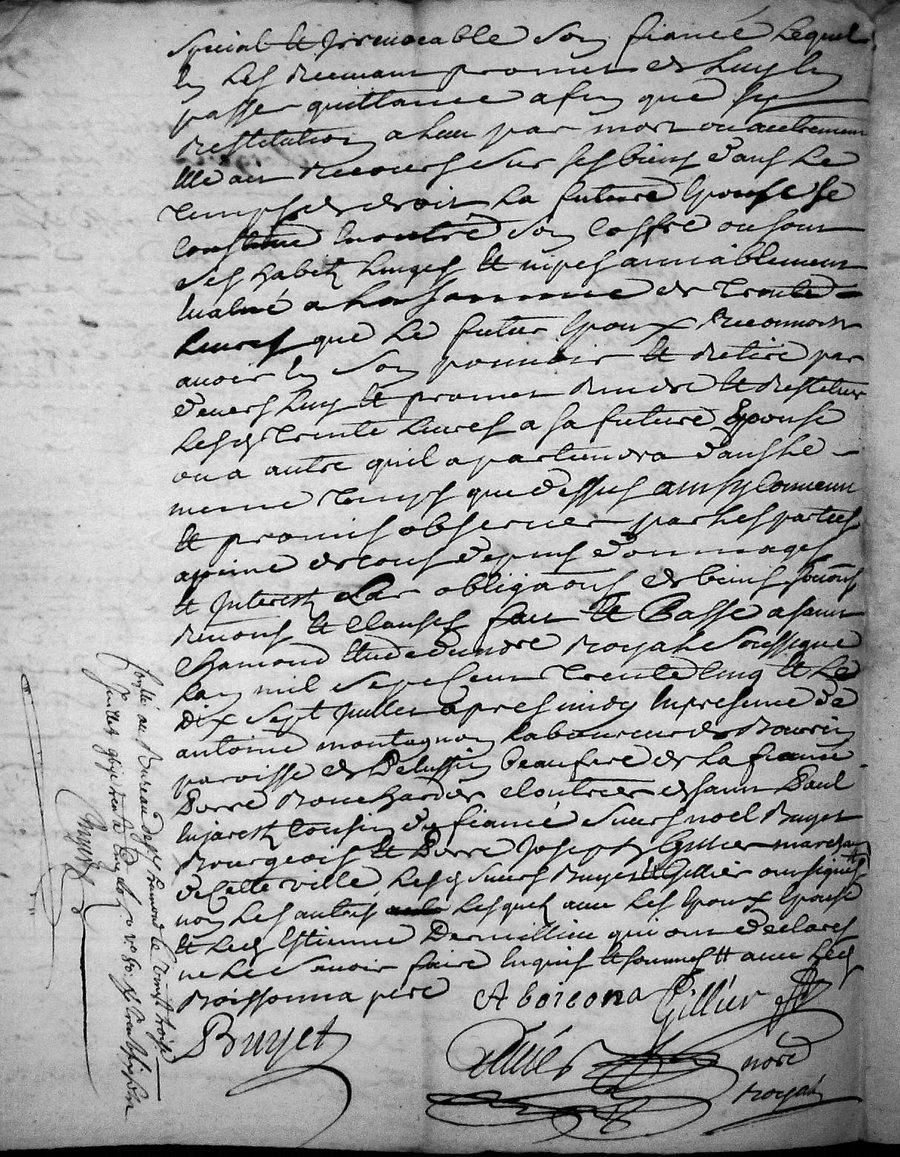 special et irrevocable son fiancé lequel
en les recevant promet et luy en
passer quittance afin que sy
restitution a lieu par mort ou autrement
elle ait recours sur ses biens dans le
temps de droit la future Epouse se
constitue en outre son coffre ou sont
ses habits linges et nipes amiablement
evalué a la somme de trente
livres que le futur Epoux reconnoit
avoir en son pouvoir et retiré par
devers luy et promet rendre et restituer
lesd trente livres a sa future Epouse
ou a autre quil apartiendra dans le
meme temps que dessus ainsy convenu
et promis observer par les parties
apeine de tous depens dommages
et interests par obligaons de biens soumons
renons et clauses fait et Passé a saint
Chamond etude du nore Royal soussigné
lan mil sept cent trente cinq et le
dix sept juillet apres midy en presence de
antoine montagnon laboureur de
paroisse de Pelussin beaufrere de la fiancée
Pierre cloutrier de saint Paul
en jarest cousin du fiancé sieurs noel Bruyet
Bourgeois et Pierre Joseph Gillier marchant
de cette ville, lesd sieurs Bruyet et Gillier ont signés
non les autres lesquels avec les Epoux Epouse
et led Estienne que ont declarés
ne le savoir faire enquis et sommés avec led
Boissonna pere A boicona Gillier
Bruyet
nore
Royal
conllé au Bureau de St Chamond le vingt trois
juillet trente cinq